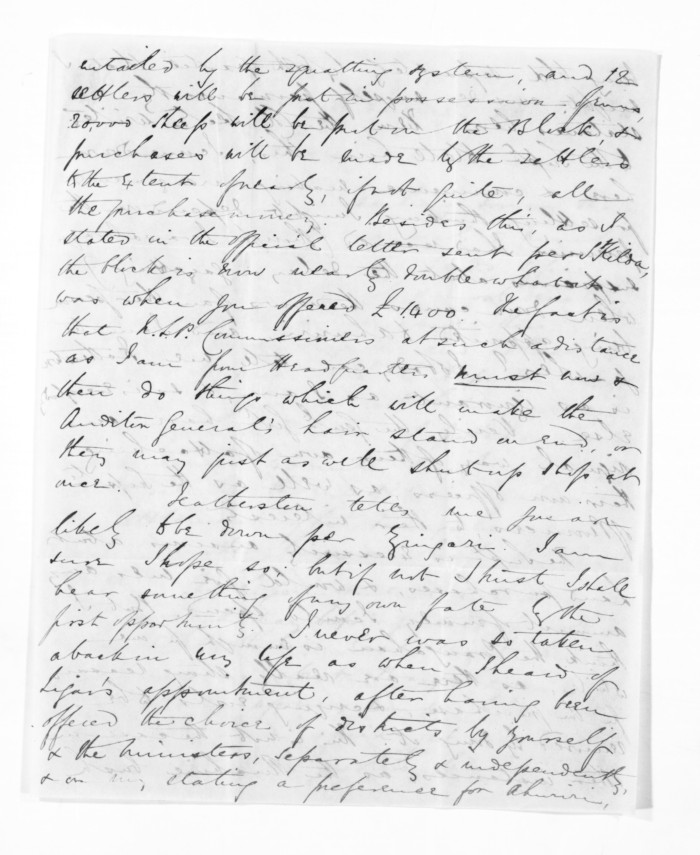 entailed by the squatting system, and 12
settlers will be put in possession of runs,
20,000 sheep will be put on the Block, &
purchases will be made by the settlers
to the extent of nearly, if not quite, all
the purchase money. Besides this, as I
stated in the official letter sent per St Kilda,
the block is now nearly double what it
was when you offered £1400. The fact is
that N.L.P. Commissioners at such a distance
as I am from Headquarters must now &
then do things which will make the
Auditor General's hair stand on end, or
they may just as well shut up shop at
once. Featherston tells me you are
likely to be down per Zingari. I am
sure I hope so: but if not I trust I shall
hear something of my own fate by the
first opportunity. I never was so taken
aback in my life as when I heard of
Ligar's appointment, after having been
offered the choice of districts by yourself
& the Ministers, separately & independently,
& on my stating a preference for Ahuriri,